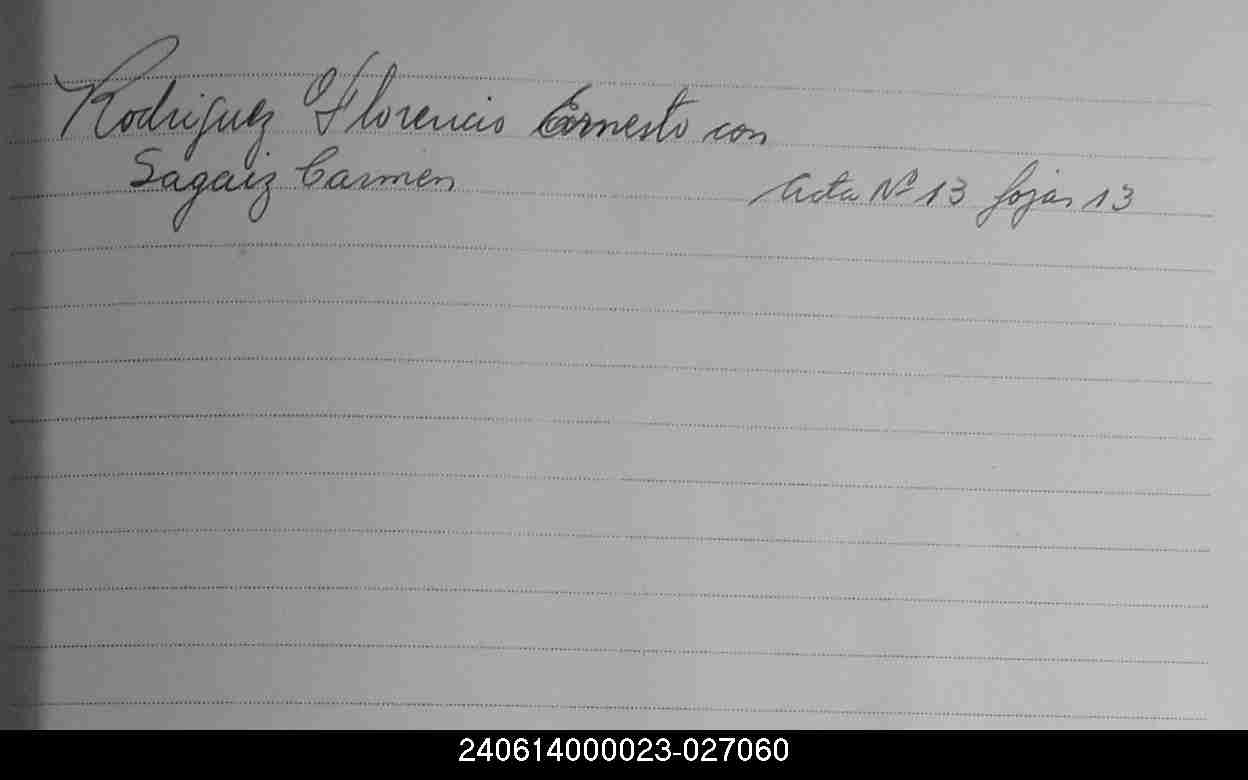 Rodriguez Florencio Ernesto con
Sagaiz Carmen
Acta Nº 13 fojas 13
240614000023-027060